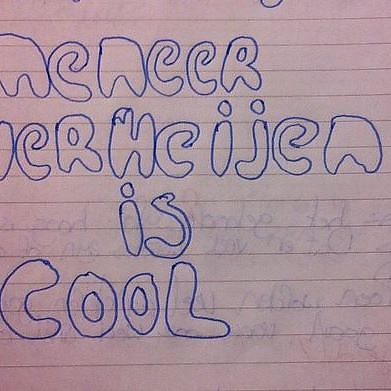 meneer
verHeijen
is
COOL